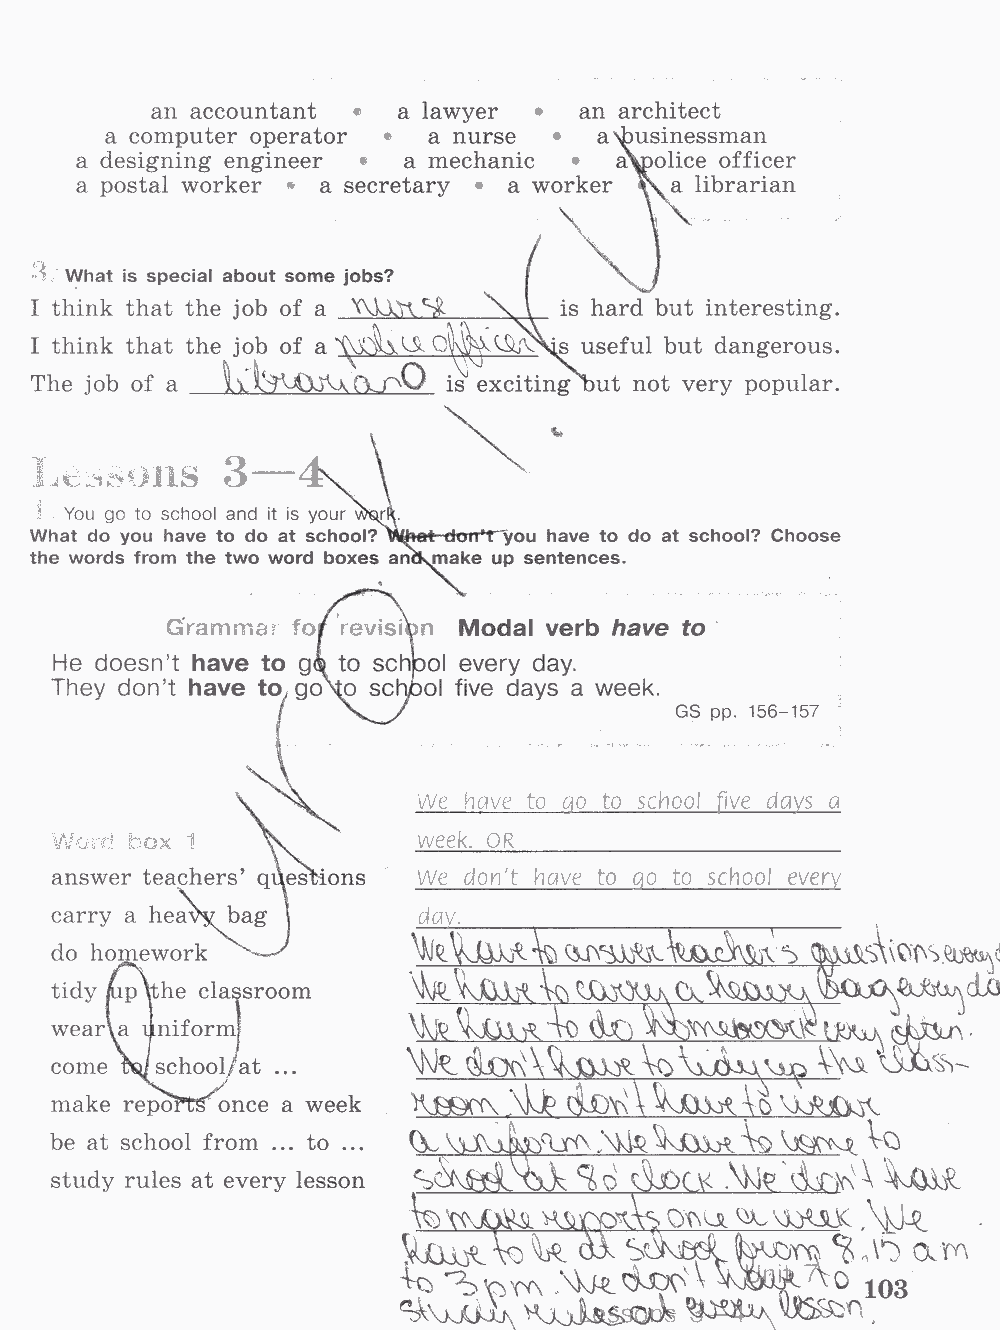 an accountant • a lawyer • an architect
a computer operator • a nurse • a businessman
a designing engineer • a mechanic • a police officer
a postal worker • a secretary • a worker • a librarian
3. What is special about some jobs?
I think that the job of a nurse is hard but interesting.
I think that the job of a police officer is useful but dangerous.
The job of a librarian is exciting but not very popular.
Lessons 3—4
1. You go to school and it is your work.
What do you have to do at school? What don't you have to do at school? Choose
the words from the two word boxes and make up sentences.
Grammar for revision Modal verb have to
He doesn't have to go to school every day.
They don't have to go to school five days a week.
GS pp. 156–157
We have to go to school five days a
week. OR
We don't have to go to school every
day.
Word box 1
answer teachers' questions
carry a heavy bag
do homework
tidy up the classroom
wear a uniform
come to school at ...
make reports once a week
be at school from ... to ...
study rules at every lesson
We have to answer teacher's questions every
We have to carry a heavy bag every da
We have to do homework very often.
We don't have to tidy up the class-
room. We don't have to wear
a uniform. We have to come to
school at 8 o'clock. We don't have
to make reports once a week. We
have to be at school from 8.15 am
to 3 pm. We don't have to
study rules at every lesson.
103